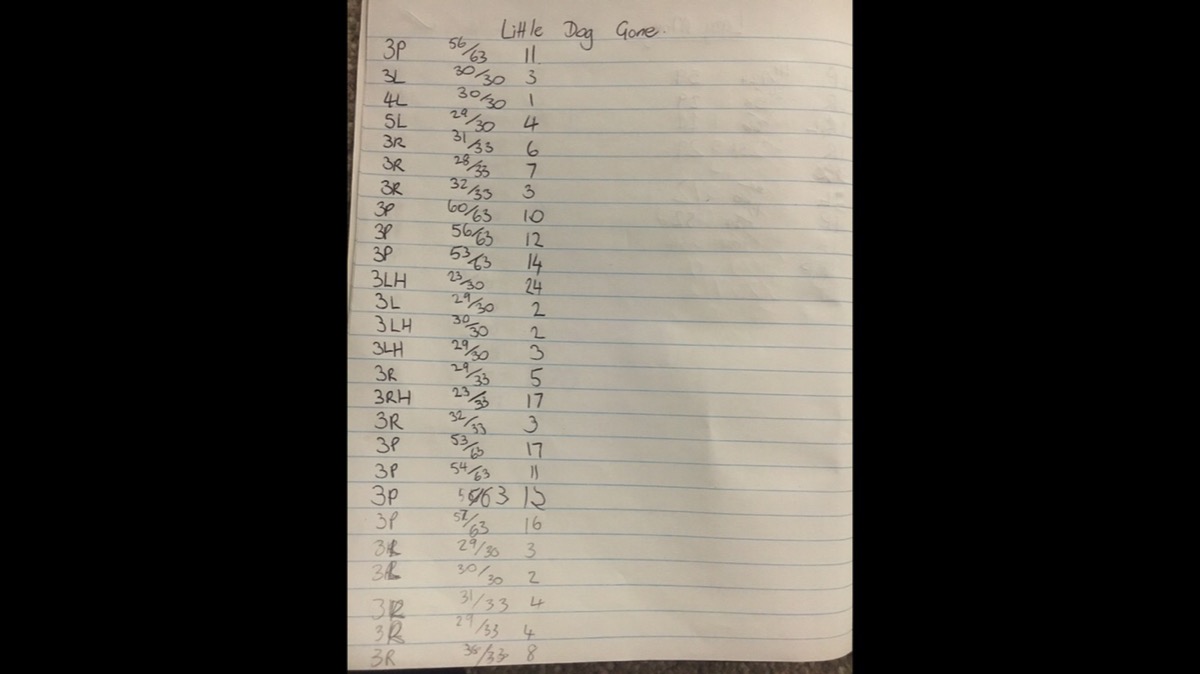 Little Dog Gone.
3P 56/63 11
3L 30/30 3
4L 30/30 1
5L 29/30 4
3R 31/33 6
3R 28/33 7
3R 32/33 3
3P 60/63 10
3P 56/63 12
3P 53/63 14
3LH 23/30 24
3L 29/30 2
3LH 30/30 2
3LH 29/30 3
3R 29/33 5
3RH 23/33 17
3R 32/33 3
3P 53/63 17
3P 54/63 11
3P
3P 16
29/30 3
30/30 2
3R 31/33 4
3R 29/33 4
3R 8